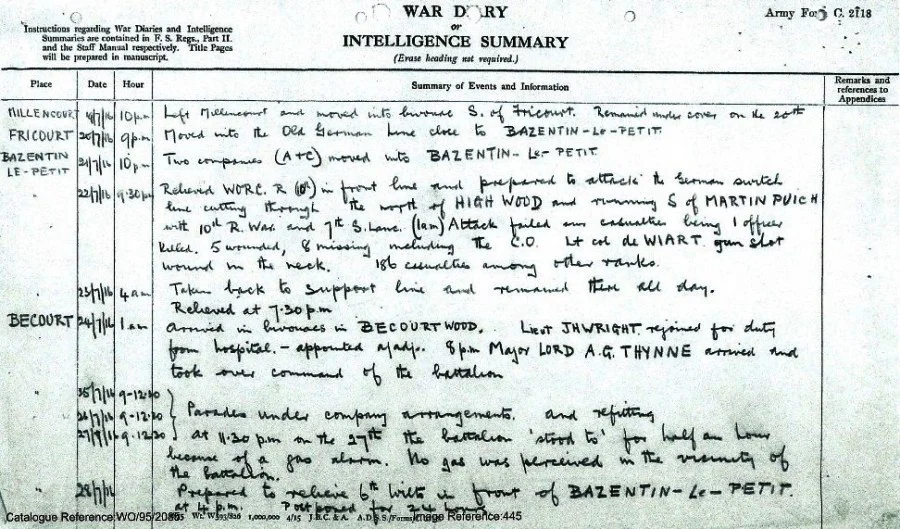 WAR DIARY
or
INTELLIGENCE SUMMARY
(Erase heading not required.)
Army Form C. 2118
Instructions regarding War Diaries and Intelligence
Summaries are contained in F. S. Regs., Part II.
and the Staff Manual respectively. Title Pages
will be prepared in manuscript.
Place Date Hour Summary of Events and Information Remarks and references to Appendices
MILLENCOURT /7/16 10 pm Left Millencourt and moved into bivouac S. of Fricourt. Remained under cover on the 20th
FRICOURT 20/7/16 9 pm Moved into the Old German Line close to BAZENTIN-LE-PETIT
BAZENTIN LE-PETIT 21/7/16 10 pm Two companies (A+C) moved into BAZENTIN-LE-PETIT
" 22/7/16 9.30 pm Relieved WORC. R (10th) in front line and prepared to attack the German switch
line cutting through the north of HIGH WOOD and running S of MARTIN PUICH
with 10th R. War. and 7th S. Lanc. (1am) Attack failed our casualties being 1 officer
killed. 5 wounded, 8 missing including the C.O. Lt col de WIART gun shot
wound in the neck. 186 casualties among other ranks.
" 23/7/16 4 am Taken back to support line and remained there all day.
Relieved at 7.30 pm
BECOURT 24/7/16 1 am arrived in bivouacs in BECOURT WOOD. Lieut JHWRIGHT rejoined for duty
from hospital. - appointed a/adjt. 8 pm Major LORD A.G. THYNNE arrived and
took over command of the battalion
" 25/7/16 9-12.30
" 26/7/16 9-12.30 Parades under company arrangements. and refitting
27/7/16 9-12.30 at 11.30 pm on the 27th the battalion 'stood to' for half an hour
because of a gas alarm. No gas was perceived in the viscinity of
the battalion.
" 28/7/16 Prepared to relieve 6th Wilts in front of BAZENTIN-LE-PETIT.
at 4 p.m. Postponed for 24 hours
Catalogue Reference:WO/95/2085 1,000,000 4/15 J.B.C. & A. A.D.S.S./Forms Image Reference:445